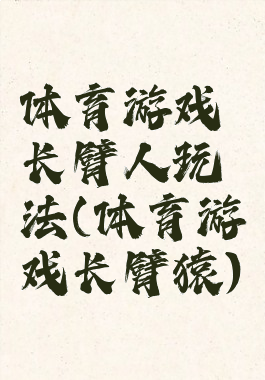 体育游戏
长臂人玩
法(体育游
戏长臂猿)